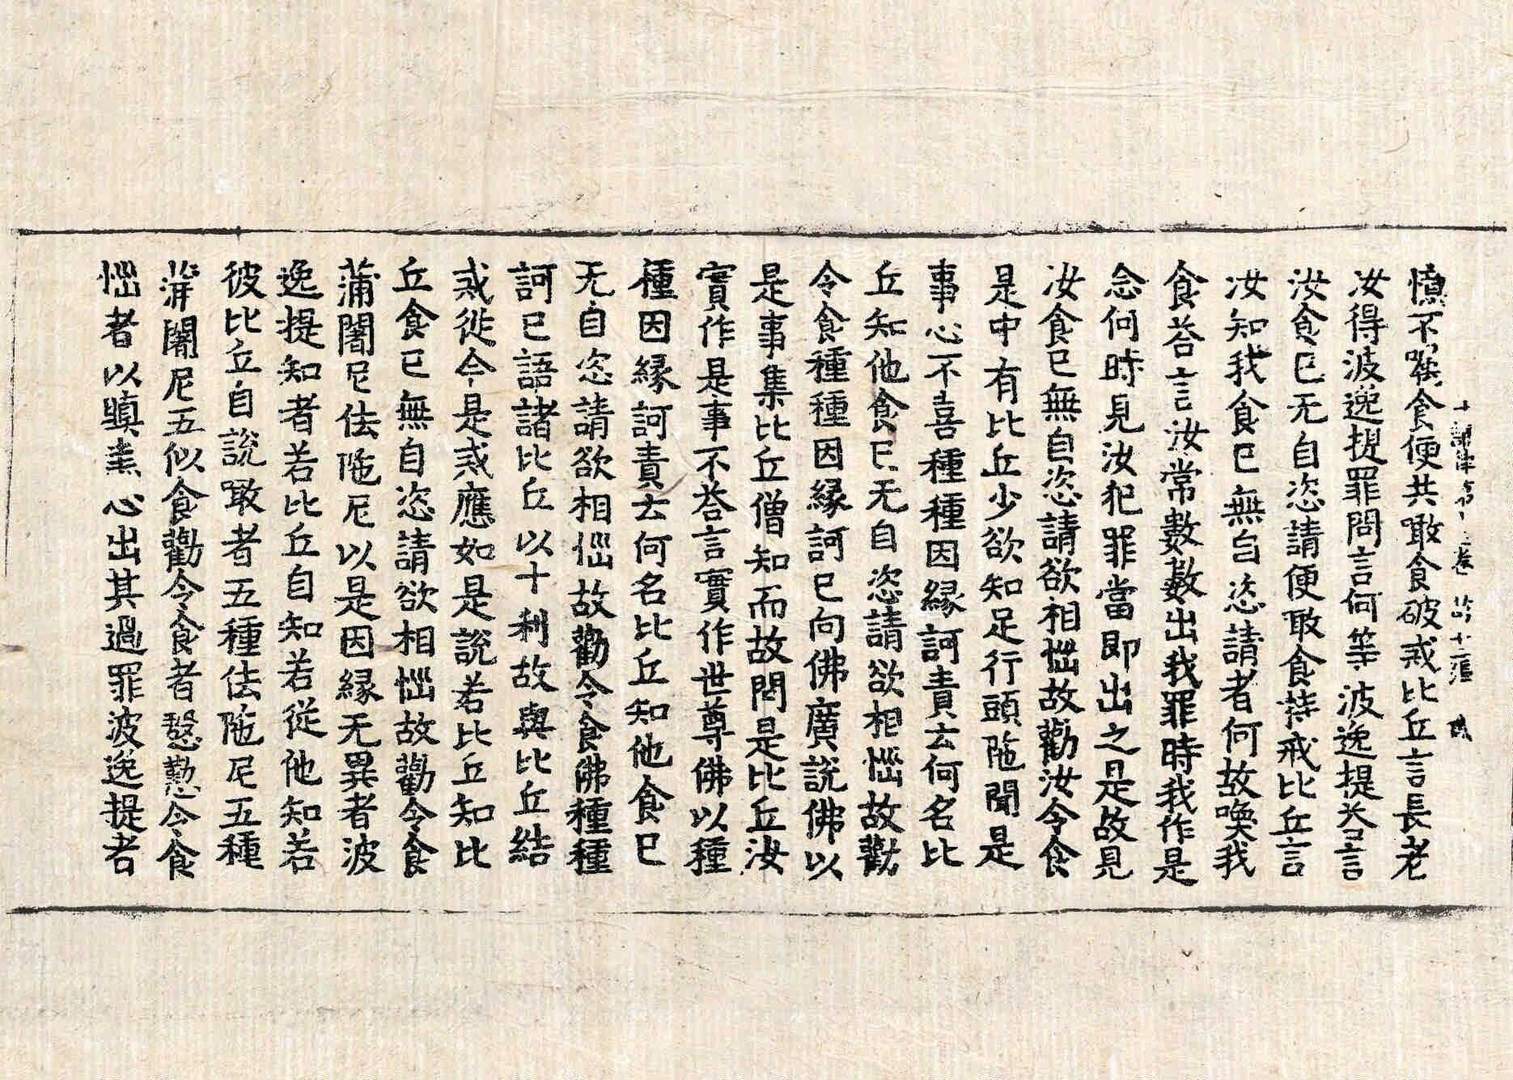 憶不喚食便共噉食破戒比丘言長老
汝得波逸提罪問言何等波逸提荅言
汝食已无自恣請便噉食持戒比丘言
汝知我食已無自恣請者何故喚我
食荅言汝常數數出我罪時我作是
念何時見汝犯罪當即出之是故見
汝食已無自恣請欲相惱故勸汝令食
是中有比丘少欲知足行頭陁聞是
事心不喜種種因緣訶責云何名比
丘知他食已无自恣請欲相惱故勸
令食種種因緣訶已向佛廣說佛以
是事集比丘僧知而故問是比丘汝
實作是事不荅言實作世尊佛以種
種因緣訶責云何名比丘知他食已
无自恣請欲相惱故勸令食佛種種
訶已語諸比丘以十利故與比丘結
戒從今是戒應如是說若比丘知比
丘食已無自恣請欲相惱故勸令食
蒲闍尼佉陁尼以是因緣无異者波
逸提知者若比丘自知若從他知若
彼比丘自說噉者五種佉陁尼五種
蒲闍尼五似食勸令食者慇懃令食
惱者以瞋恚心出其過罪波逸提者